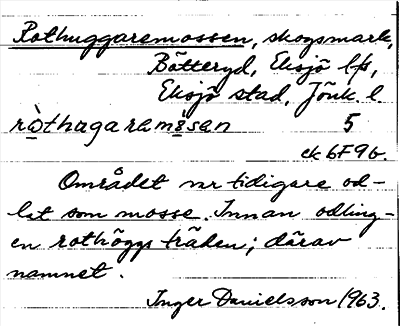 Rothuggaremossen, skogsmark,
Bötteryd, Eksjö lfs,
Eksjö stad, Jönk. l.
ròthagaramåsan 5
ek 6F9b.
Området var tidigare od-
lat som mosse. Innan odling-
en rothöggs träden; därav
namnet.
Inger Danielsson 1963.